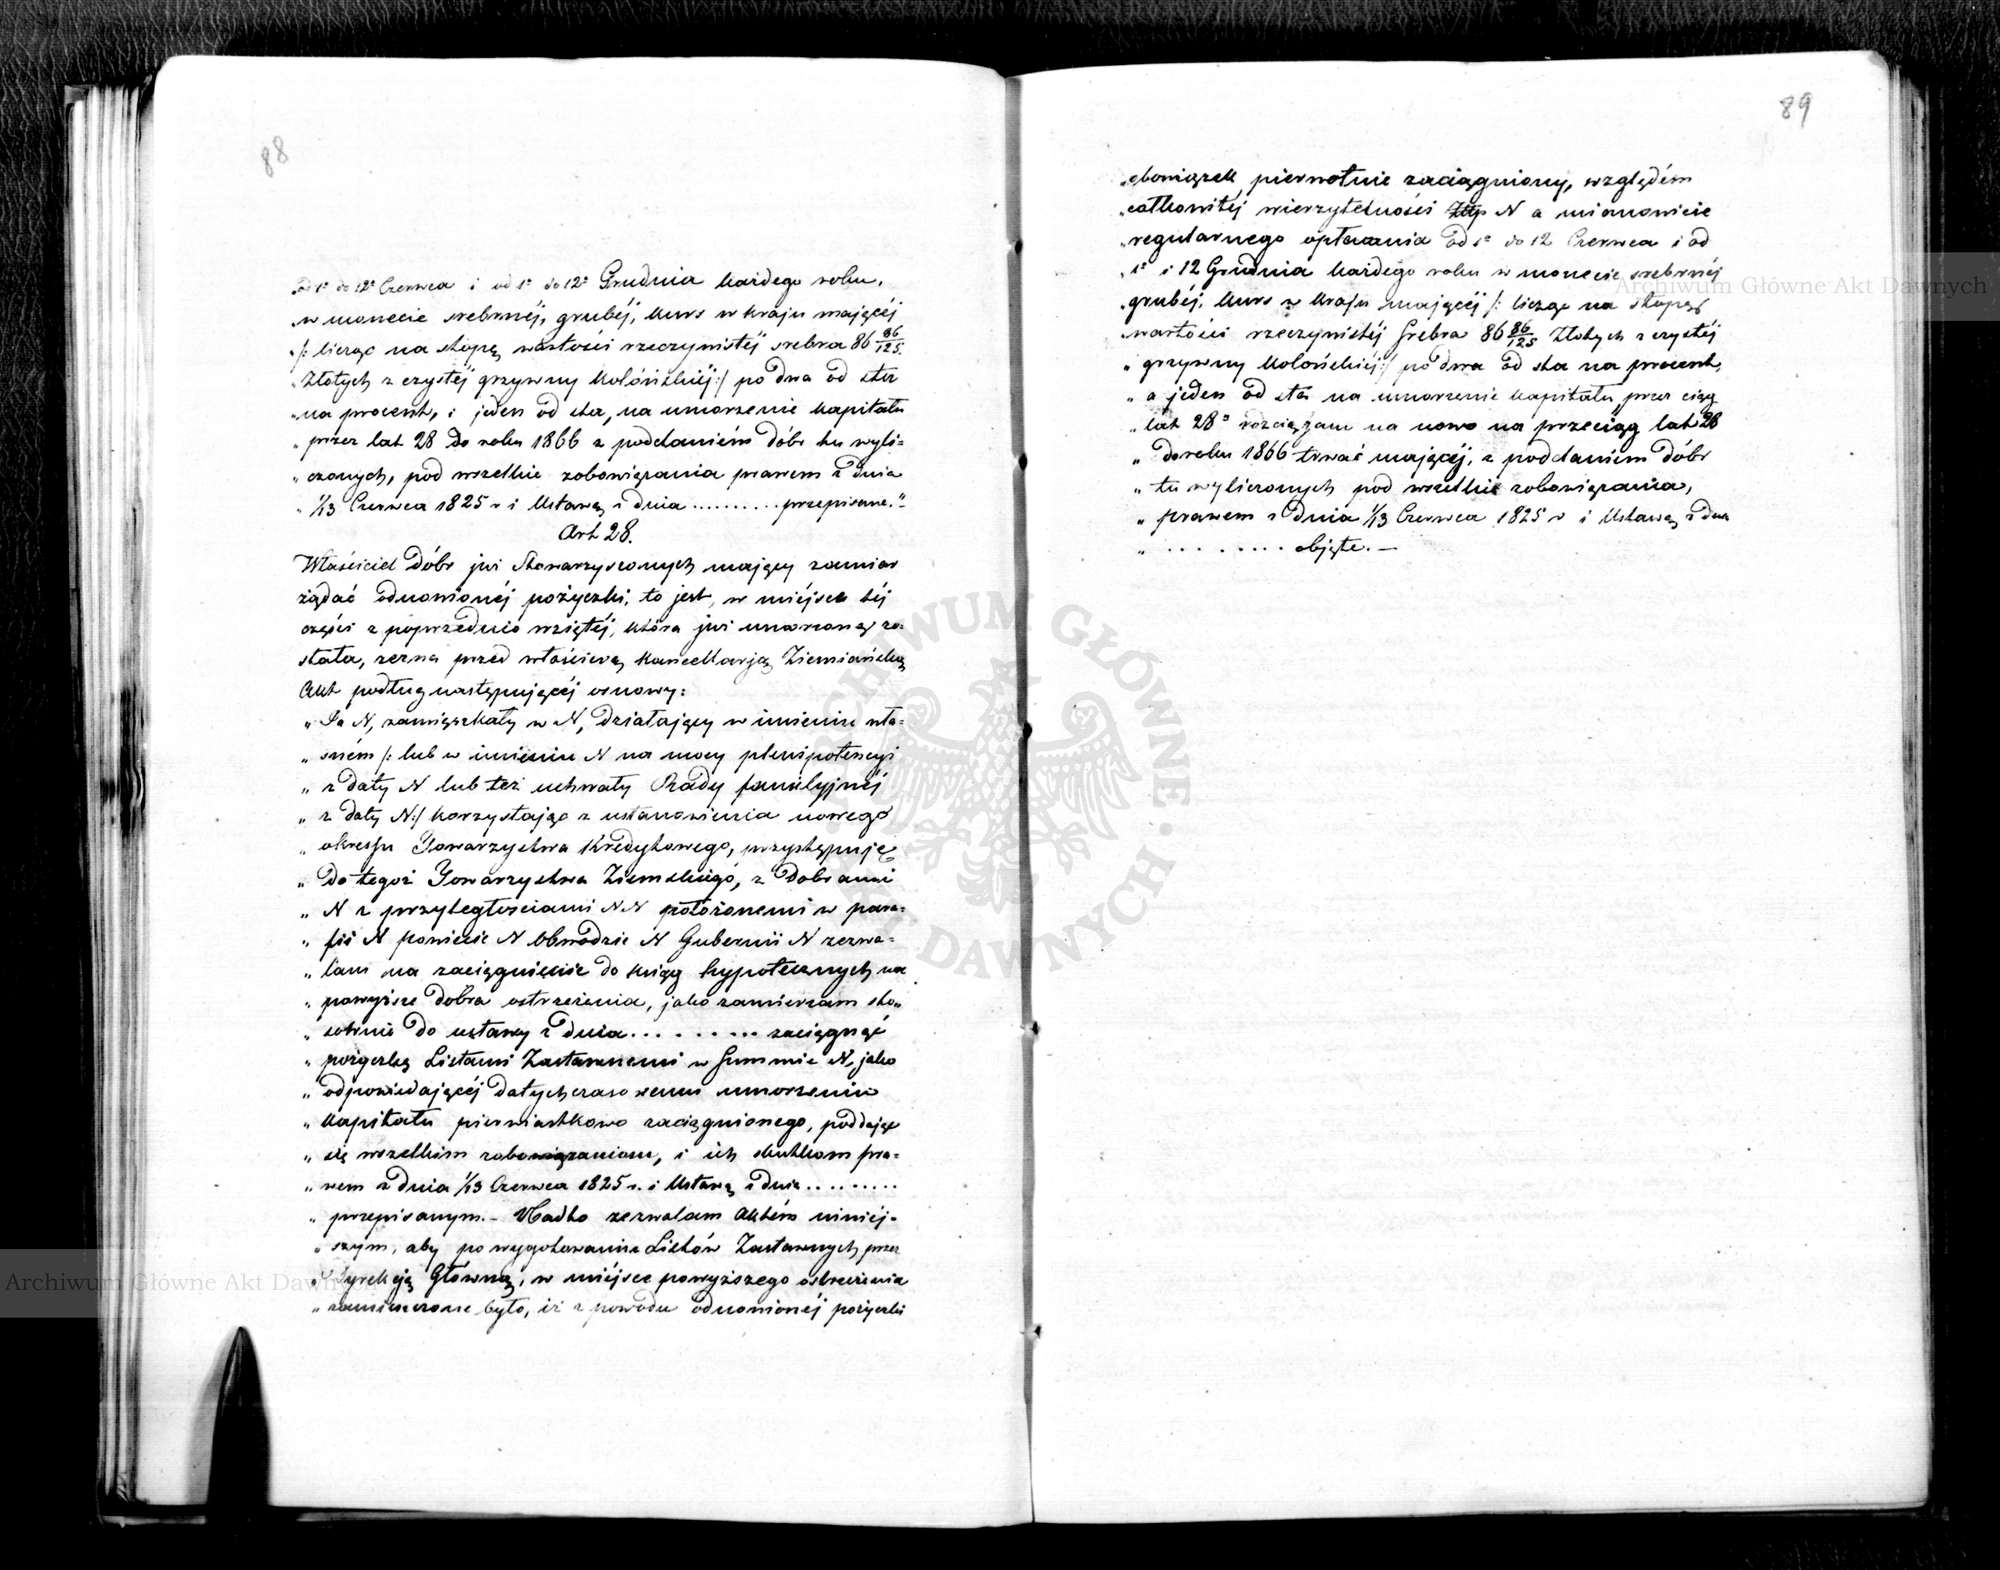 88
„od 1º do 12º Czerwca i od 1º do 12º Grudnia każdego roku,
„w monecie srebrnéj, grubéj, kurs w kraju mającéj
„/: licząc na stopę wartości rzeczywistéj srebra 86 86/125
„Złotych z czystéj grzywny Kolońskiéj:/ po dwa od sta
„na procent, i jeden od sta, na umorzenie kapitału
„przez lat 28 do roku 1866 z poddaniém dóbr tu wyli=
„czonych, pod wszelkie zobowiązania prawem z dnia
„1/13 Czerwca 1825 r i Ustawą z dnia .......... przepisane."
Art 28.
Właściciel dóbr już Stowarzyszonych mający zamiar
żądać odnowionéj pożyczki, to jest, w miéjsce téj
części z poprzednio wziętéj, która już umorzoną zo=
stała, zezna przed właściwą Kancellarją Ziemiańską
Akt podług następującéj osnowy:
„Ja N, zamięszkały w N, działający w imieniu wła=
„sném /: lub w imieniu N na mocy plenipotencyi
„z daty N lub też uchwały Rady familyjnéj
„z daty N:/ korzystając z ustanowienia nowego
„okressu Towarzystwa Kredytowego, przystępuję
„do tegoż Towarzystwa Ziemskiégo, z dobrami
„N z przyległościami NN położonemi w para=
„fii N powiecie N Obwodzie N Gubernii N zezwa=
„lam na zaciągnienie do ksiąg hypotecznych na
„powyższe dobra ostrzeżenia, jako zamierzam sto=
„sownie do ustawy z dnia .......... zaciągnąć
„pożyczkę Listami Zastawnemi w Summie N, jako
„odpowiedającéj dotychczasowemu umorzeniu
„kapitału pierwiastkowo zaciągnionego, poddając
„się wszelkim zobowiązaniom, i ich skutkom pra=
„wem z dnia 1/13 Czerwca 1825 r. i Ustawą z dnia ........
„przepisanym. – Nadto zezwalam Aktém niniéj=
„szym, aby po wygotowaniu Listów Zastawnych przez
„Dyrekcją Główną, w miéjsce powyższego ostrzeżenia
„zamieszczone było, iż z powodu odnowionéj pożyczki
89
„obowiązek pierwotnie zaciągniony, względém
„całkowitéj wierzytelności Złtp N a mianowicie
„regularnego opłacania od 1º do 12 Czerwca i od
„1º i 12 Grudnia każdego roku w monecie srebrnéj
„grubéj, kurs w kraju mającéj /: licząc na stopę
„wartości rzeczywistéj Srebra 86 86/125 Złotych z czystéj
„grzywny Kolońskiéj:/ po dwa od sta na procent,
„a jeden od sta na umorzenie kapitału przez ciąg
„lat 28 rozciągam na nowo na przeciąg lat 28
„do roku 1866 trwać mającéj, z poddaniem dóbr
„tu wyliczonych pod wszelkie zobowiązania,
„prawem z dnia 1/13 Czerwca 1825 r i Ustawą z dnia
„......... objęte. –
Archiwum Główne Akt Dawnych
Archiwum Główne Akt Dawnych
ARCHIWUM GŁÓWNE AKT DAWNYCH